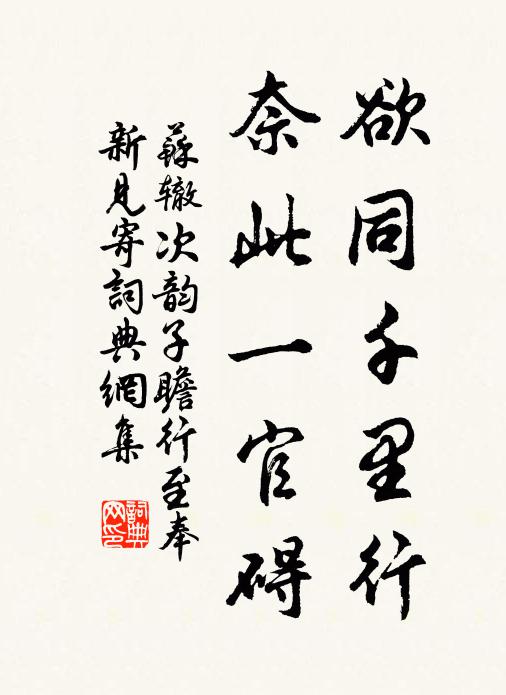 欲同千里行
奈此一官碍
蘇辙次韵子瞻行至奉
新见寄詞典網集
詞典网印